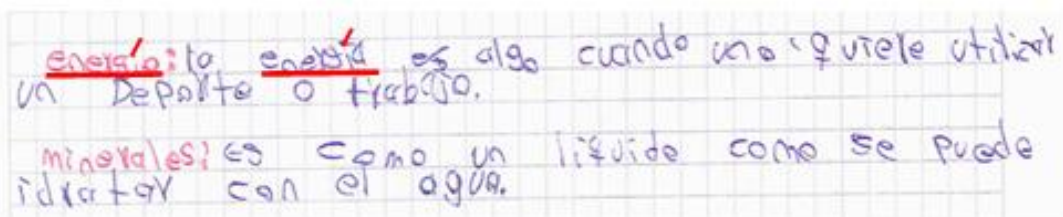 energía: la energía es algo cuando uno quiere utilizar
un Deporte o trabajo.
minerales: es como un liquido como se puede
idratar con el agua.